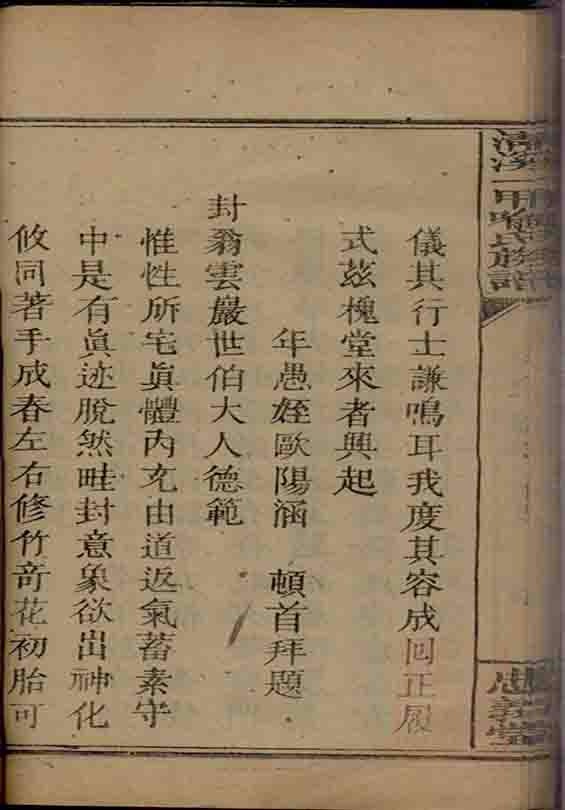 清溪一甲喻氏族譜
忠義堂
儀其行士謙鳴耳我度其容成回正履
式茲槐堂來者興起
年愚姪歐陽涵 頓首拜題
封翁雲巖世伯大人德範
惟性所宅眞體內充由道返氣蓄素守
中是有眞迹脫然畦封意象欲出神化
攸同著手成春左右修竹奇花初胎可